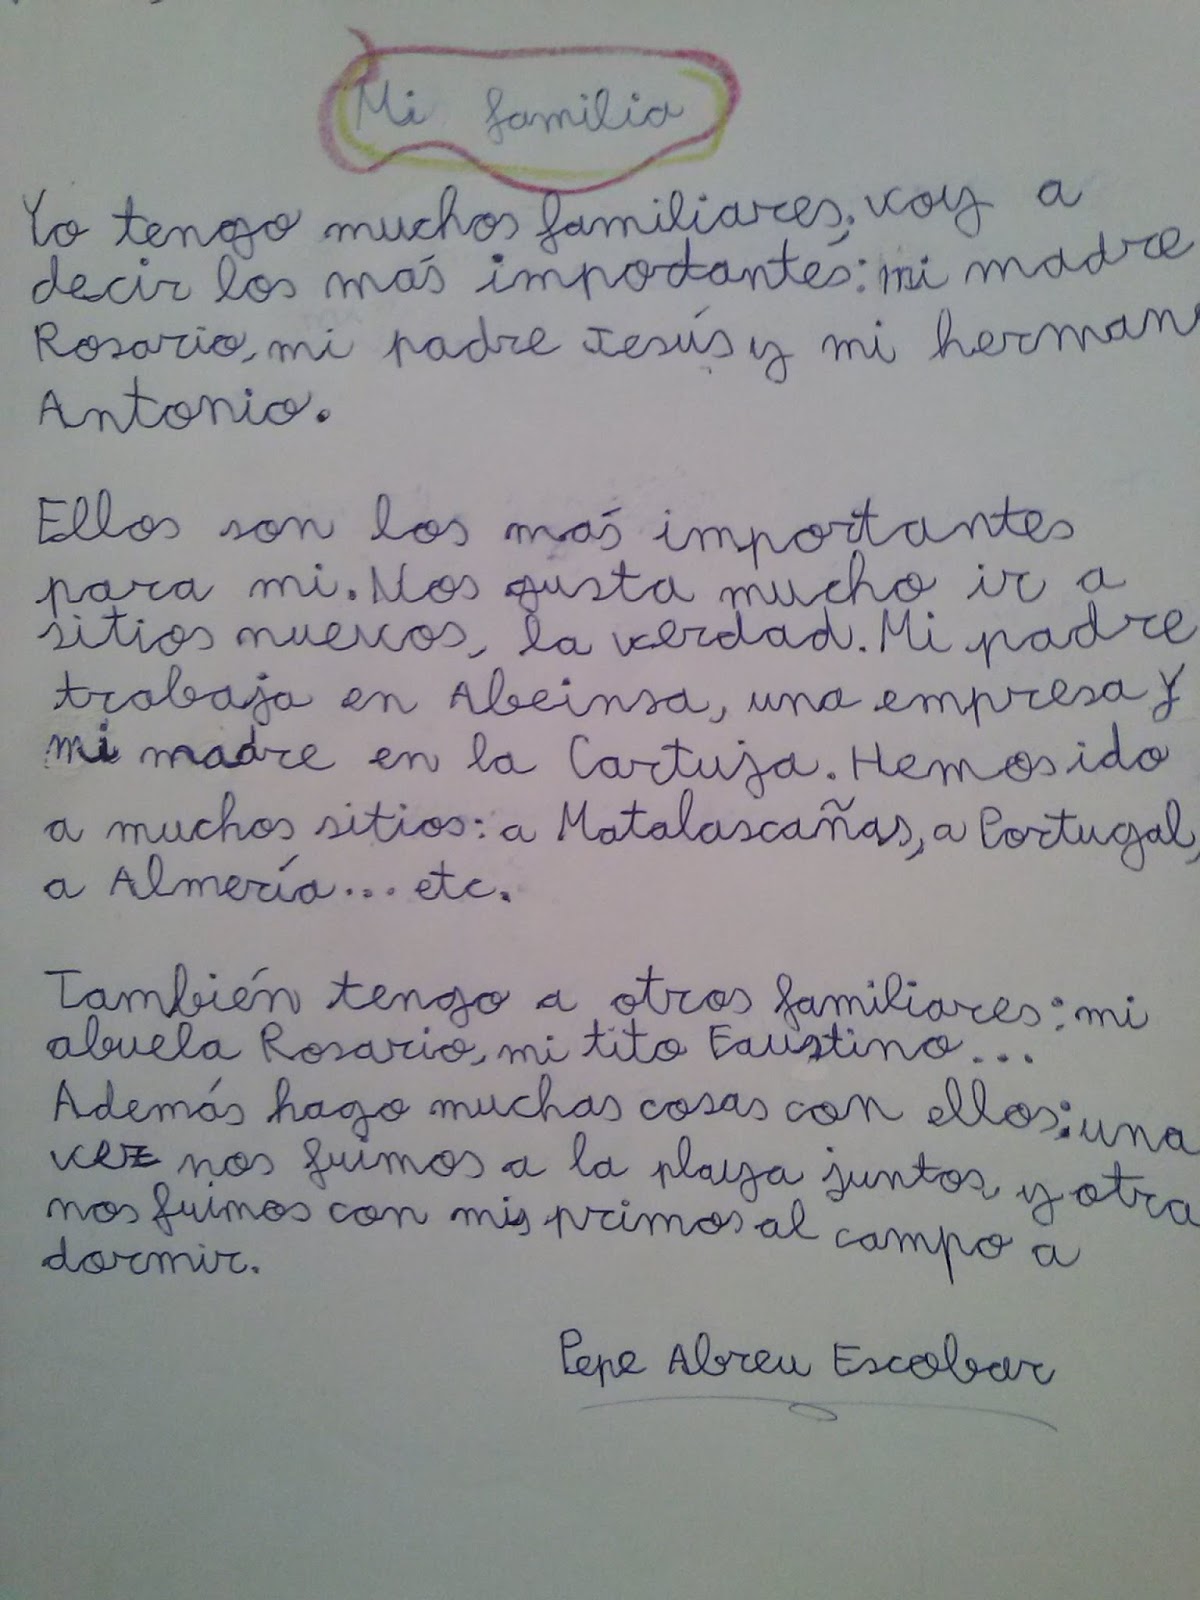 Mi familia
Yo tengo muchos familiares, voy a
decir los más importantes: mi madre
Rosario, mi padre Jesús y mi herman
Antonio.
Ellos son los más importantes
para mi. Nos gusta mucho ir a
sitios nuevos, la verdad. Mi padre
trabaja en Abeinsa, una empresa y
mi madre en la Cartuja. Hemos ido
a muchos sitios: a Matalascañas, a Portugal,
a Almería... etc.
También tengo a otros familiares: mi
abuela Rosario, mi tito Faustino...
Además hago muchas cosas con ellos: una
vez nos fuimos a la playa juntos, y otra
nos fuimos con mis primos al campo a
dormir.
Pepe Abreu Escobar